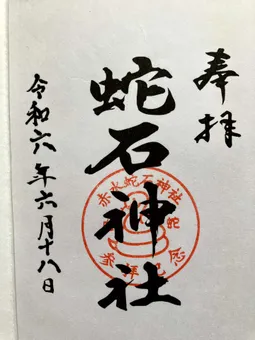 奉拝
蛇石神社
令和六年六月十八日
赤水蛇石神社
参拝記念